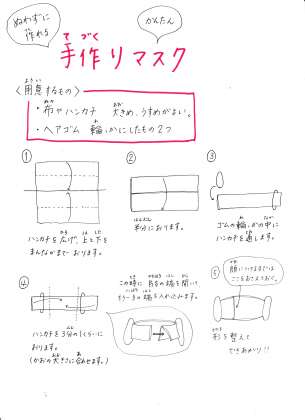 ぬわずに
作れる
かんたん
手作りマスク
て づく
〈用意するもの〉
ようい
・布やハンカチ 大きめ、うすめがよい。
・ヘアゴム 輪っかにしたもの2つ
①
ハンカチを広げ、上と下を
まんなかまでおります。
②
半分におります。
③
ゴムの輪っかの中に
ハンカチを通します。
④
ハンカチを3分の1くらいに
おります。
(かおの大きさに合わせます。)
この時に 片方の端を開いて
もう一方の端を入れ込みます。
⑤
顔につけるまでは
ここをおさえておく。
形を整えて
できあがり!!